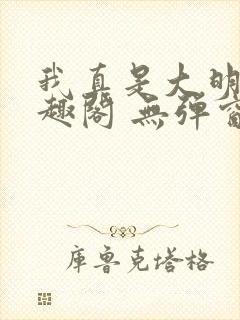 我真是大明
趣閣 無彈窗
库鲁克塔格